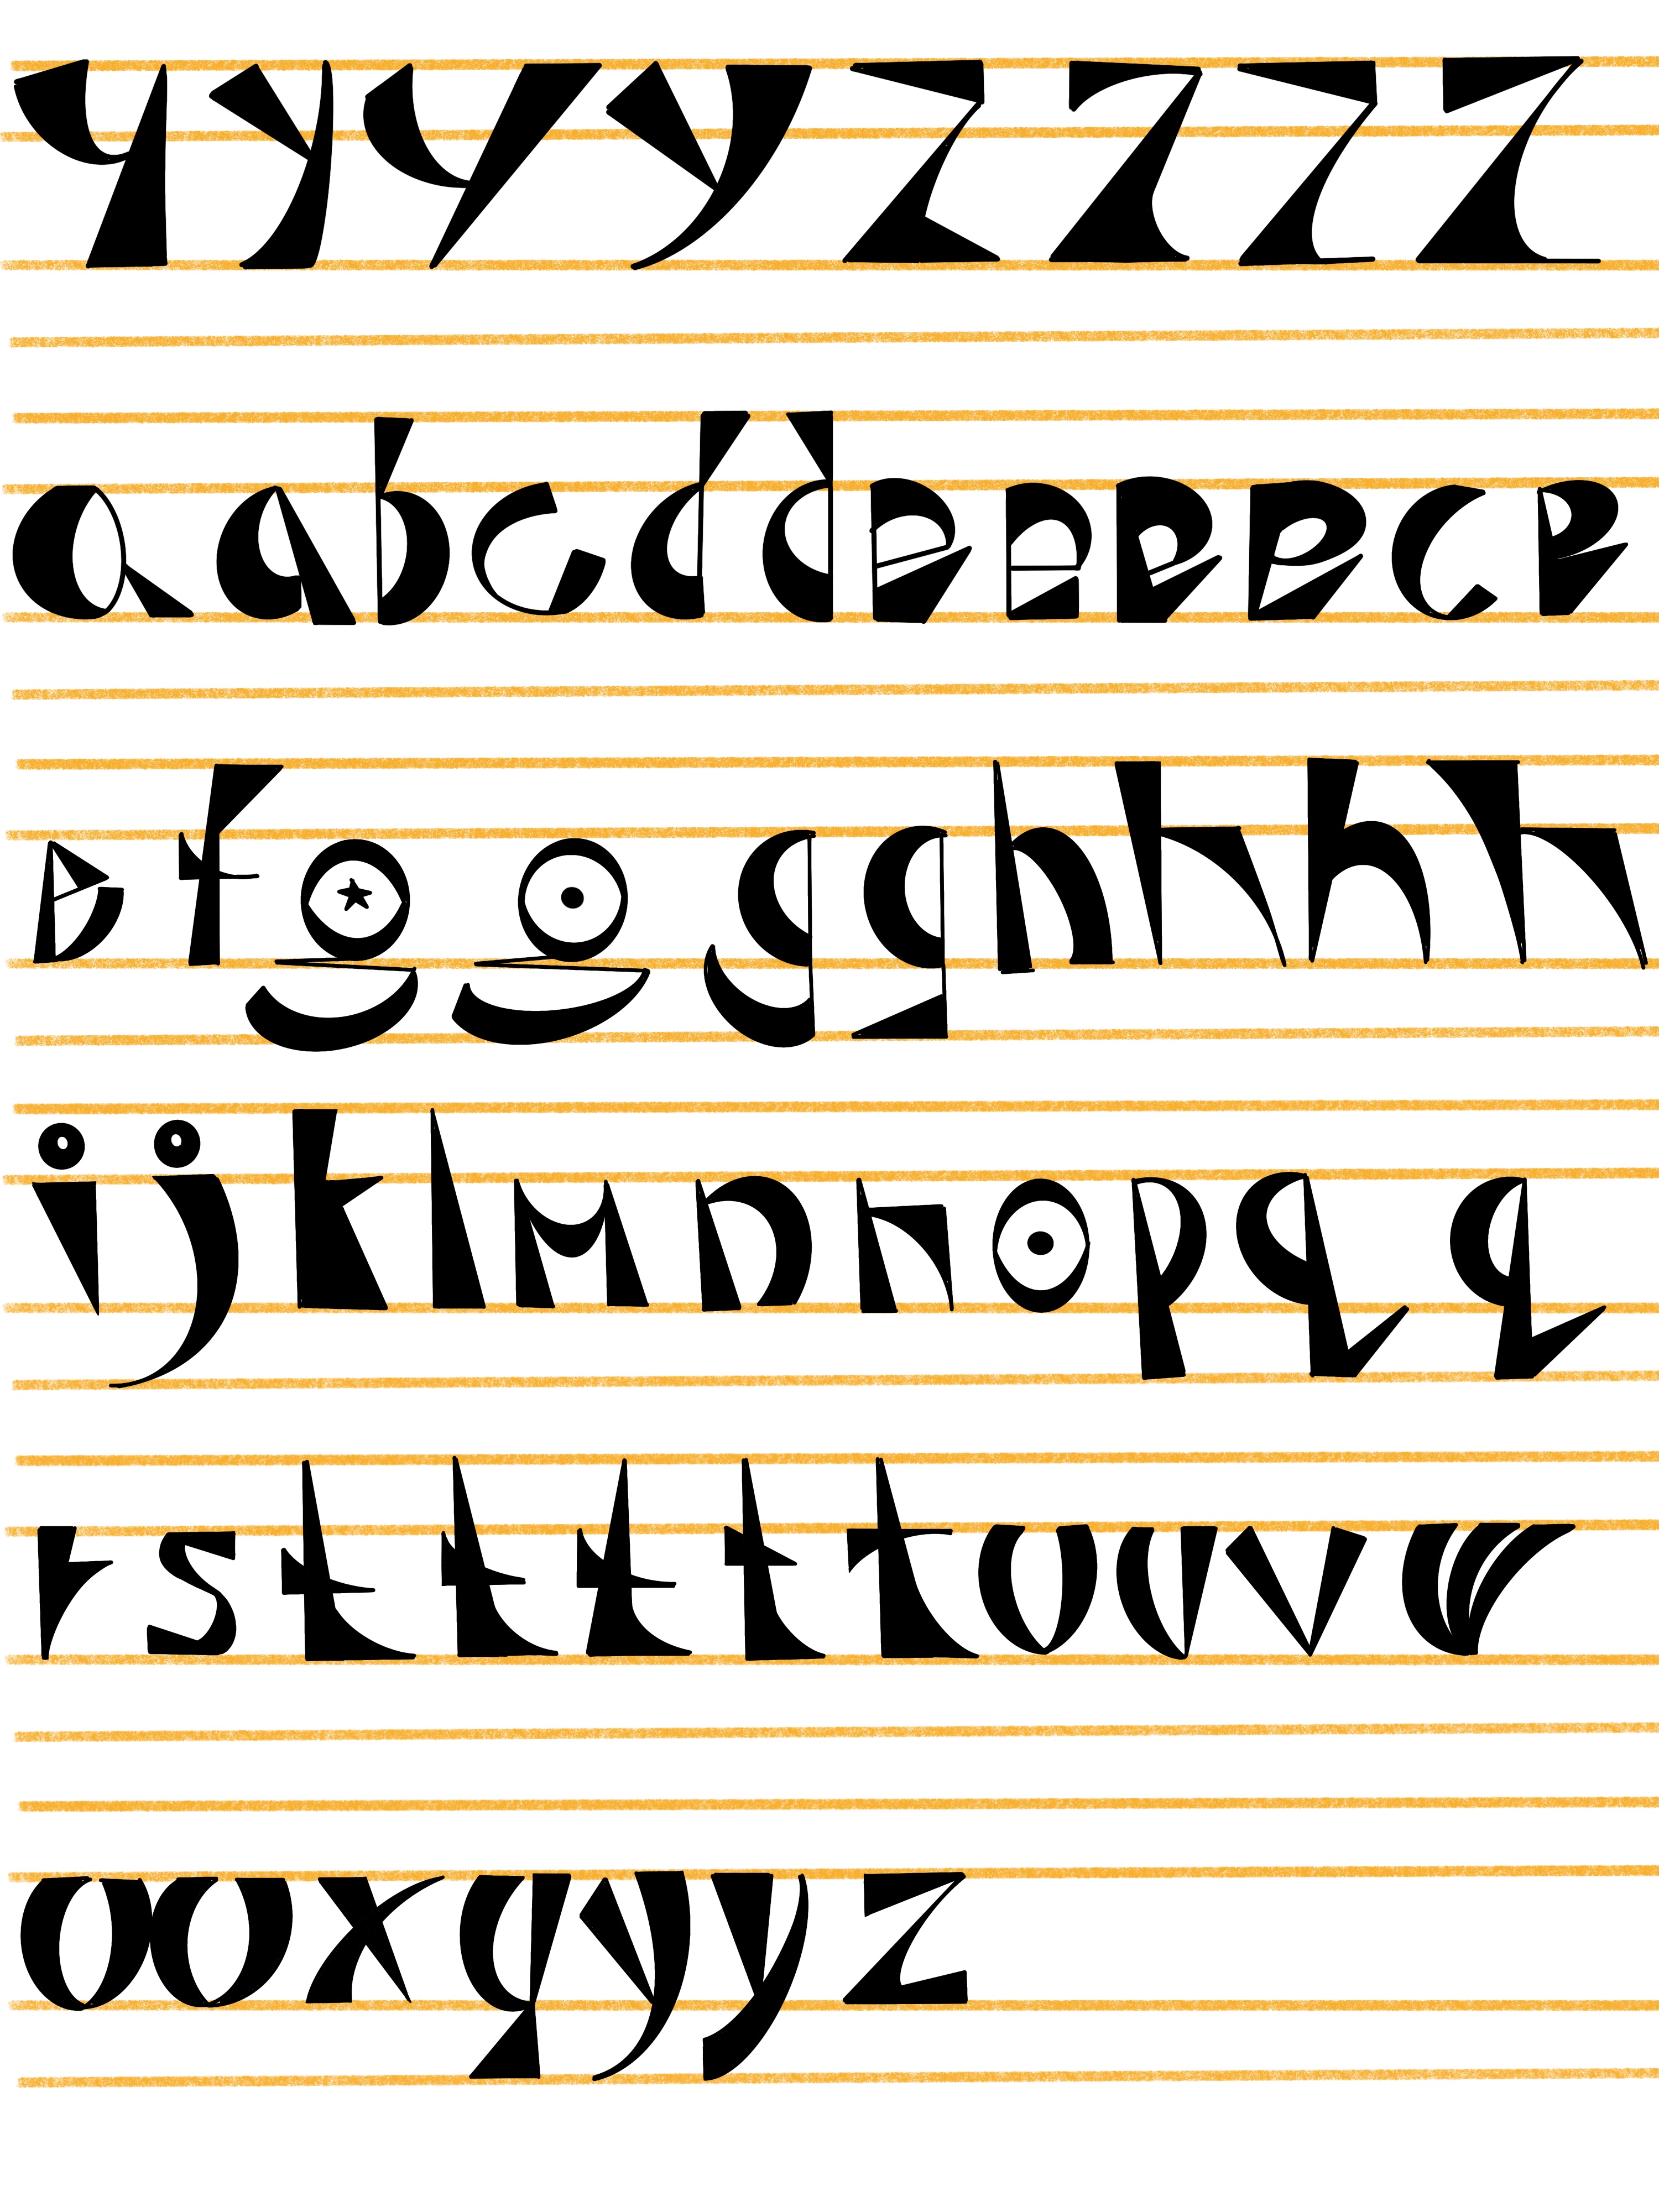 YYYYZZZZ
aabcddeeeeee
efgggghhhh
ijklmnnopqq
rstttttuuvw
wxyyyz